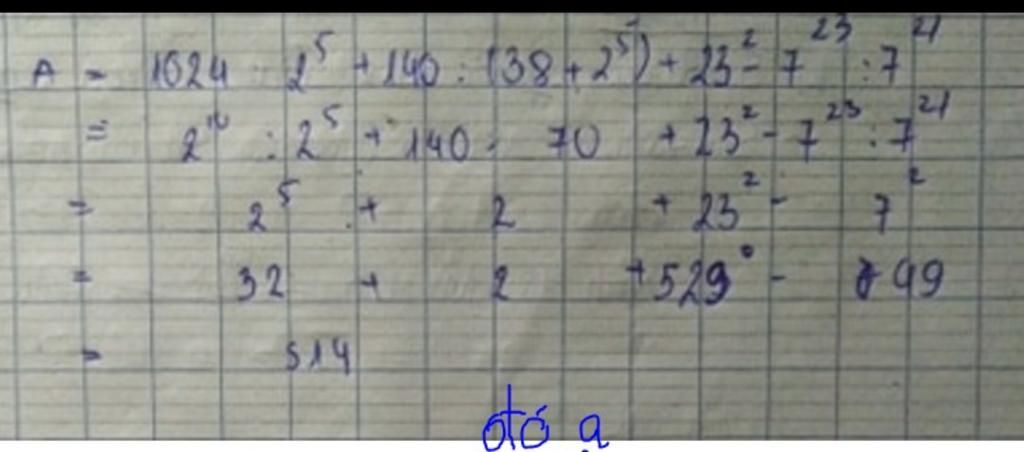 A = 1024 : 2⁵ + 140 : (38 + 2⁵) + 23² - 7²³ : 7²¹
= 2¹⁰ : 2⁵ + 140 : 70 + 23² - 7²³ : 7²¹
= 2⁵ + 2 + 23² - 7²
= 32 + 2 + 529 - 49
= 514